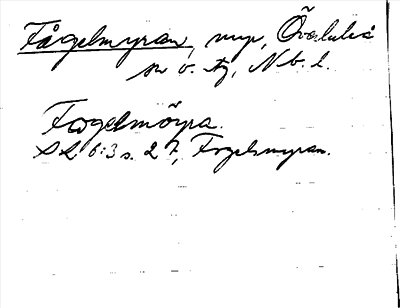 Fågelmyran, myr, Överluleå
sn o. tg, Nb. l.
Fogelmöyra.
SL 6:3 s. 27, Fogelmyran.